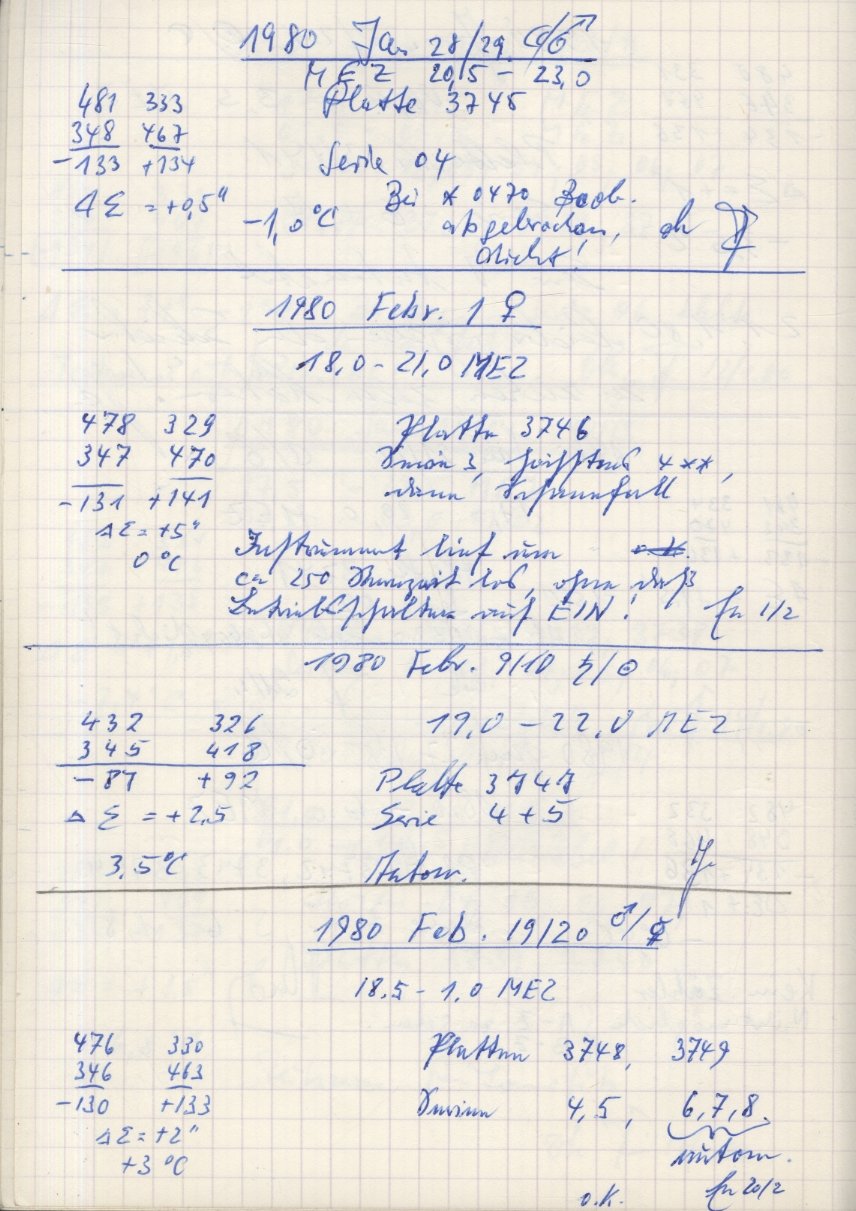 1980 Jan 28/29 ☾/♂
MEZ 20,5 - 23,0
481 333 Platte 3745
348 467
-133 +134 Serie 04
ΔΣ = +0,5" Bei * 0470 Beob.
-1,0°C abgebrochen,
Dicht!
1980 Febr. 1 ♀
18,0 - 21,0 MEZ
478 329 Platte 3746
347 470 Serie 3, höchstens 4 **,
-131 +141 dann Schneefall
ΔΣ = +5"
0°C Instrument lief um
ca 250 Sternzeit los, ohne daß
Betriebsschalter auf EIN! 1/2
1980 Febr. 9/10 ♄/☉
432 326 19,0 - 22,0 MEZ
345 418
-87 +92 Platte 3747
ΔΣ = +2,5 Serie 4+5
3,5°C Autom.
1980 Feb. 19/20 ♂/☿
18.5 - 1,0 MEZ
476 330 Platten 3748, 3749
346 463
-130 +133 Serien 4,5, 6,7,8.
ΔΣ = +2" autom.
+3°C
o.K. 20/2